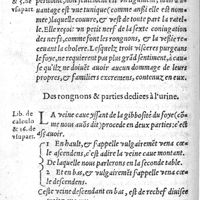 & 5. de
vsu part.
uantage est vne tunique (comme ansi elle est nommee
) laquelle couure, & vest de toute part la ratelle
. Elle reçoit vn petit nerf de la sexte coniugation
des nerfs, comme font les rongnons, & la vessie
tenant la cholere. Lesquelz trois visceres purgeans
le foye, ne requierent pas plus grãd sentiment, à cause
qu'ilz n'ont à endurer aucun dommage de leurs
propres, & familiers excremens, contenuz en eux.
Des rongnons & parties dediees à l'urine.
Lib. de
calculo
& 16. de
vsu part.
LA veine caue yssant de la gibbosité du foye (comme
nous auõs dit) procede en deux parties: c'est
assauoir.
1 En hault, & s'appelle vulgairemẽt vena cœle
ascendens, c'est adire la veine caue montant.
De laquelle nous parlerons en la seconde table.
2 Et en bas, & s'appelle vulgairemẽt vena cœle
descendens.
Ceste veine descendant en bas, est de rechef diuisee